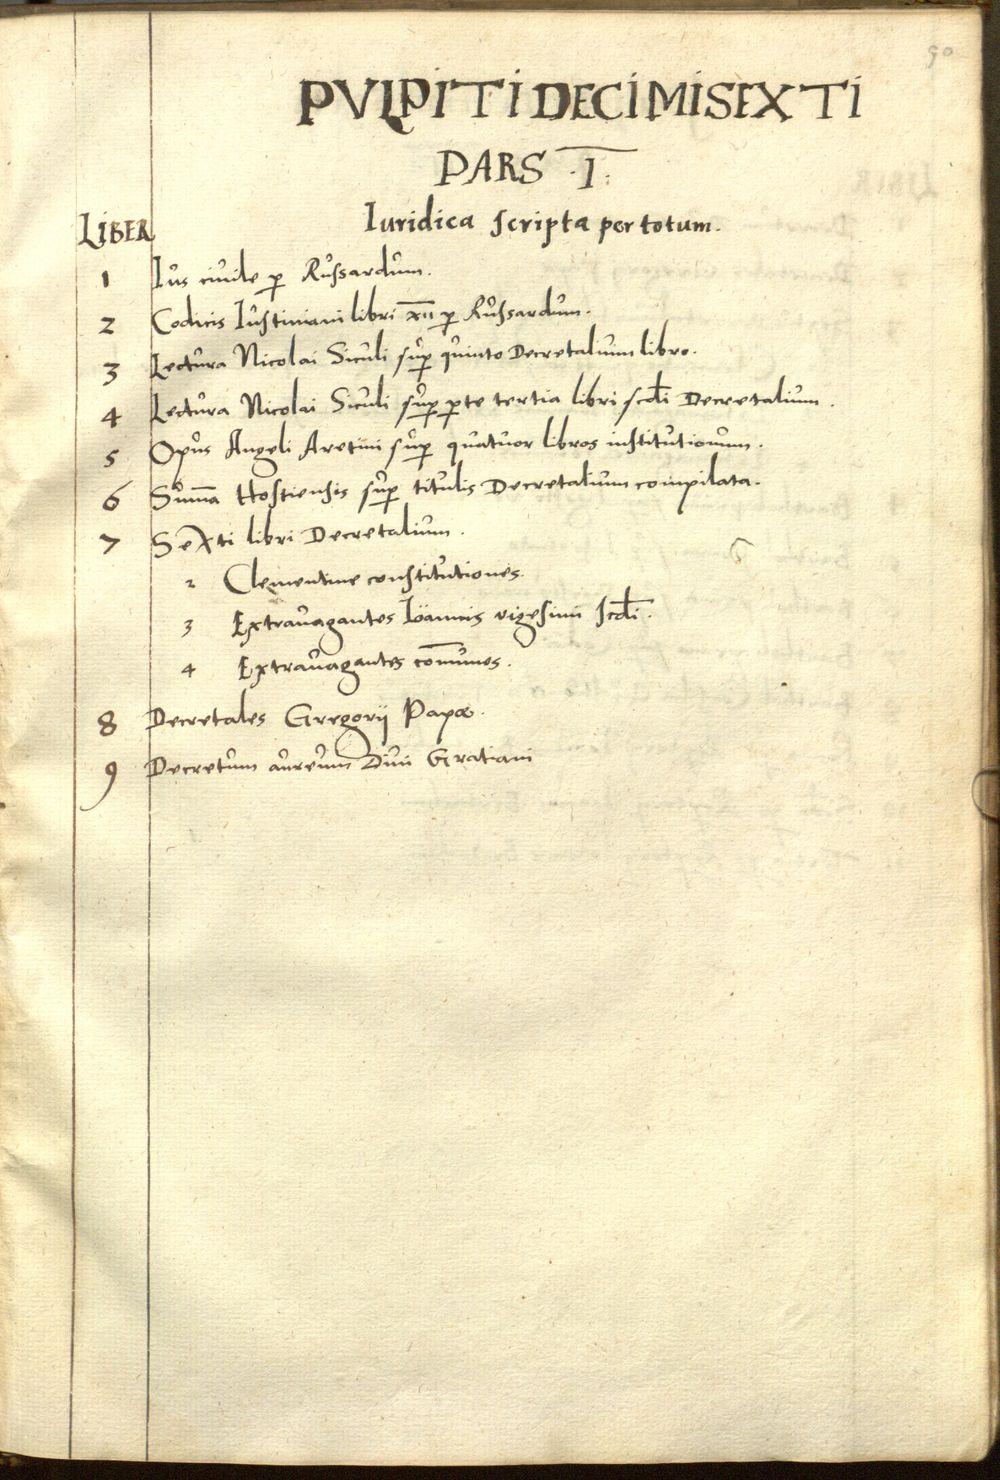 50
PVLPITI DECIMISEXTI
PARS .I.
LIBER Iuridica scripta per totum.
1 Ius ciuile p Russardum.
2 Codicis Iustiniani libri xii p Russardum.
3 Lectura Nicolai Siculi sup quinto Decretalium libro.
4 Lectura Nicolai Siculi sup pte tertia libri scdi Decretalium.
5 Opus Angeli Aretini sup quatuor libros institutionum.
6 Suma Hostiensis sup titulis Decretalium compilata.
7 Sexti libri Decretalium.
2 Clementine constitutiones.
3 Extrauagantes Ioannis vigesimi scdi.
4 Extrauagantes comunes.
8 Decretales Gregorij Papæ.
9 Decretum aureum Diui Gratiani